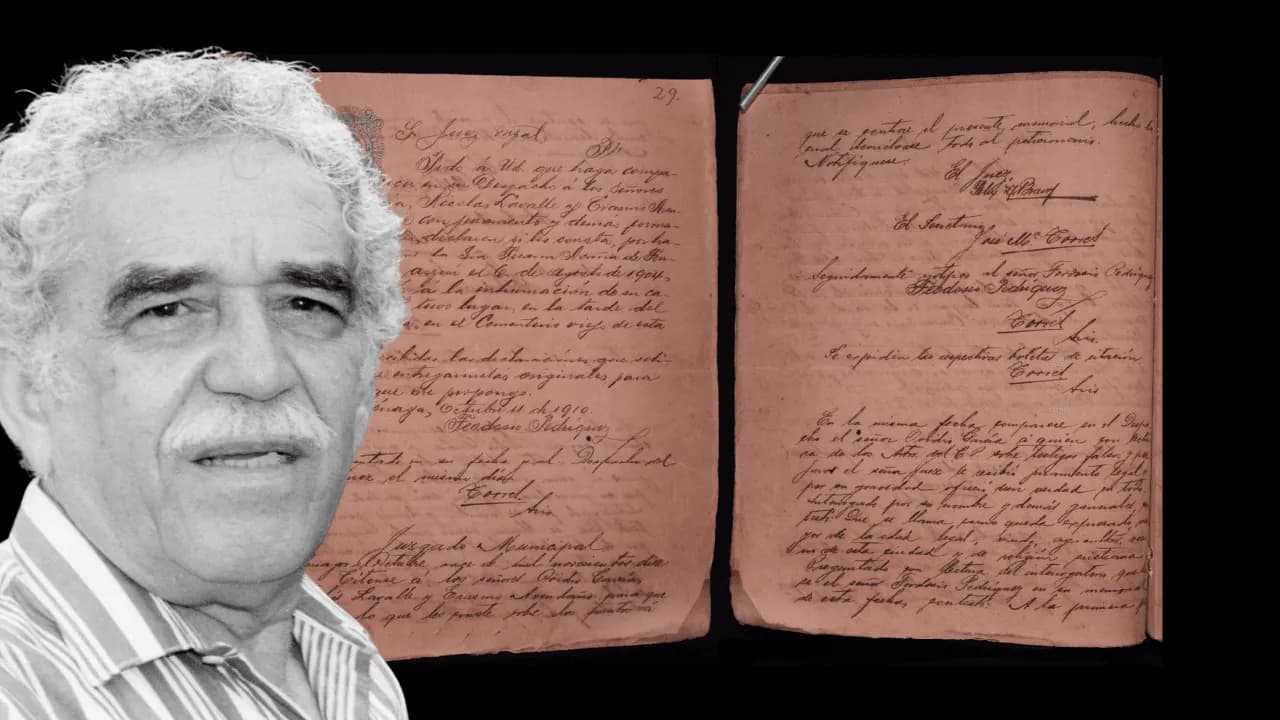 29.
Sr Juez mpal
Pte
Pido á Ud. que haga compa-
cer en su Despacho á los señores
a, Nicolas Lavalle y Erasmo Aven-
con juramento y demas forma-
declaren si les consta, por ha-
la Sra
en el 6 de Agosto de 1904,
la inhumación de su ca-
tuvo lugar, en la tarde del
en el Cementerio viejo de esta
cibidas las declaraciones que soli-
entreguemelas originales para
que me propongo.
naga, Octubre 11 de 1910.
Teodosio Pedriguez
en su fecha y al Despacho del
el mismo día.
Torres
Srio
Juzgado Municipal
Octubre, once de mil novecientos diez
Citense a los señores Ovidio Garcia,
Lavalle y Erasmo Avendaño para que
lo que les conste sobre los puntos á
que se contrae el presente memorial, hecho lo
cual devuelvase todo al peticionario.
Notifiquese.
El Juez,
El Secretario,
José Mª Torres
Seguidamente notifico al señor Teodosio Pedriguez
Teodosio Pedriguez
Torres
Srio.
Se expiden las respectivas boletas de citación
Torres
Srio
En la misma fecha comparece en el Despa-
cho el señor Ovidio Garcia á quien con lectu-
ra de los Artos. del C.P. sobre testigos falsos y per-
juros el señor Juez le recibió juramento legal y
por su gravedad ofreció decir verdad en todo
interrogado por su nombre y demás generales,
contestó: Que se llama, como queda expresado, ma-
yor de la edad legal, agricultor, ve-
cino de esta ciudad y de religión cristiana
Preguntado con lectura del interrogatorio que ha-
ce el señor Teodosio Pedriguez en su memorial
de esta fecha, contestó: A la primera